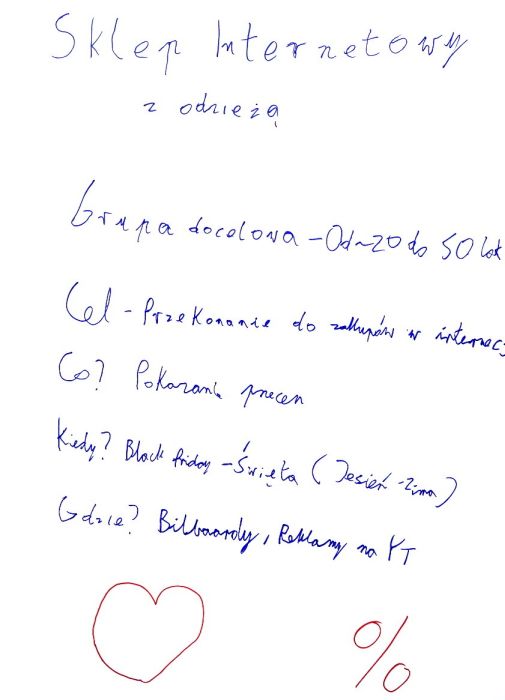 Sklep Internetowy
z odzieżą
Grupa docelowa - Od ~20 do 50 lat
Cel - Przekonanie do zakupów w internec
Co? Pokazanie przecen
Kiedy? Black friday - Święta (Jesień - Zima)
Gdzie? Bilbaardy, Reklamy na YT
%